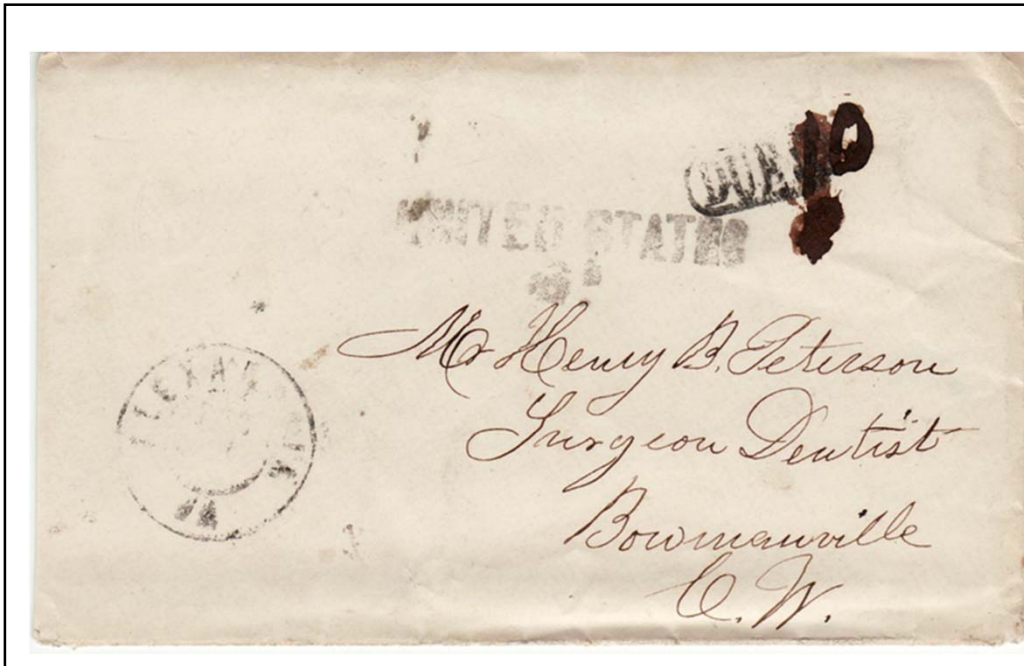 UNITED STATES
Mr Henry B. Peterson
Surgeon Dentist
Bowmanville
C. W.